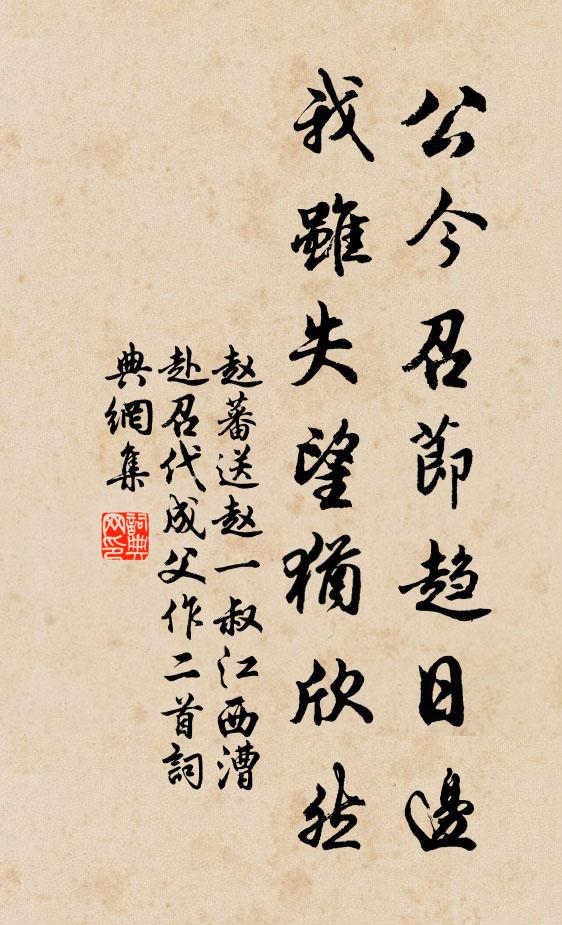 公今召節趋日邊
我雖失望猶欣然
赵蕃送赵一叔江西漕
赴召代成父作二首詞
典網集
詞典网印